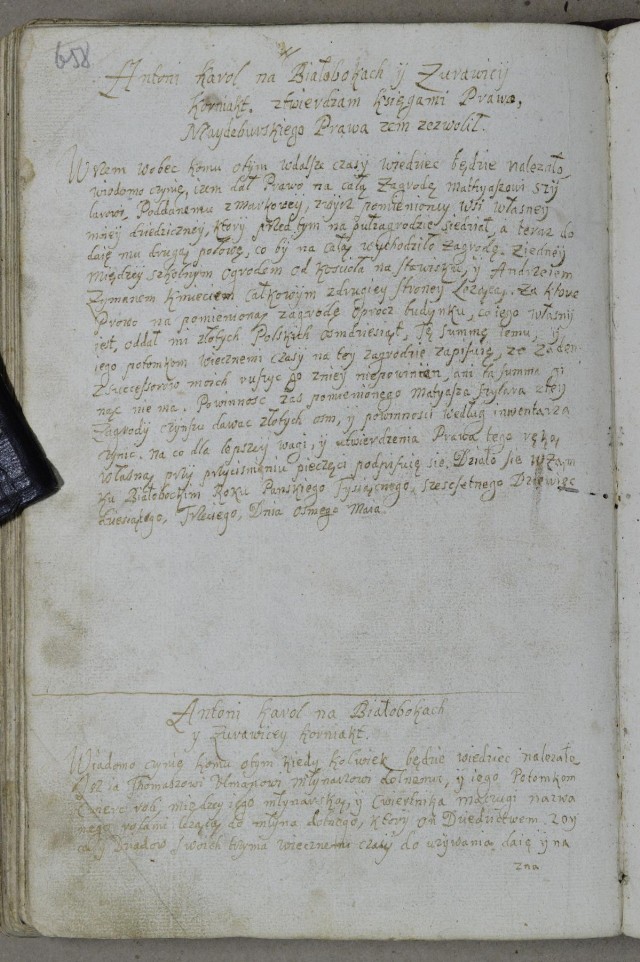 658
Antoni Karol na Białobokach y Zurawicij
Korniakt. ztwierdzam Księgami Prawa,
Maydeburskiego Prawa zem zezwolił.
Wszem wobec komu otym wdalsze czasy wiedziec będzie nalezało
wiadomo czynię, izem dał Prawo na całą Zagrodę Mathyaszowi Szy
Poddanemu zMarkowey, zwysz pomienioney wsi własney
mney dziedziczney, ktory przed tym na pułzagrodzie siedział, a teraz do
daię mu drugą połowę, co by na całą wychodziło Zagrodę. Ziedney
między szkolnym ogrodem od Koscioła na stawisku, y Andrzeiem
Kmieciem Całkowym zdrugiey strony Lezącą. Za ktore
Prawo na pomienioną zagrodę oprocz budynku, co iego własny
iest, oddał mi złotych Polskich osmdziesiąt, Tę summę iemu, y
iego potomkom wiecznemi czasy na tey zagrodzie zapisuię, ze zaden
zSuccessorow moich ruszyc go zniey niepowinien, ani ta summa gi
nąc nie ma. Powinnosc zas pomienionego Matyasza ztey
Zagrody czynszu dawac złotych osm, y powinnosci według inwentarza
czynic. Na co dla lepszey wagi, y utwierdzenia Prawa tego ręką
własną przy przycisnieniu pieczęci podpisuię się. Działo się wZam
ku Białobockim Roku Panskiego Tysiącnego, szescsetnego Dziewięc
dziesiątego, Trzeciego, Dnia osmego Maia.
Antoni Karol na Białobokach
y Zurawicey Korniakt.
Wiadomo czynię komu otym kiedy kolwiek będzie wiedziec nalezało
Isz ia Thomaszowi młynarzowi dolnemu, y iego Potomkom
rolj między iego młynarską, y Cwiertnika
rolami lezącą do młyna dolnego, ktory on Dziedzictwem zoy
cow y Dziadow swoich trzyma wiecznemi czasy do uzywania daię y na
zna